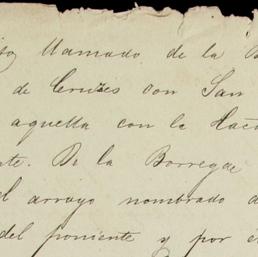 llamado de la
de Cruzes con San
aquella con la Hac
te. De la Borrega
el arroyo nombrado
del poniente y por e